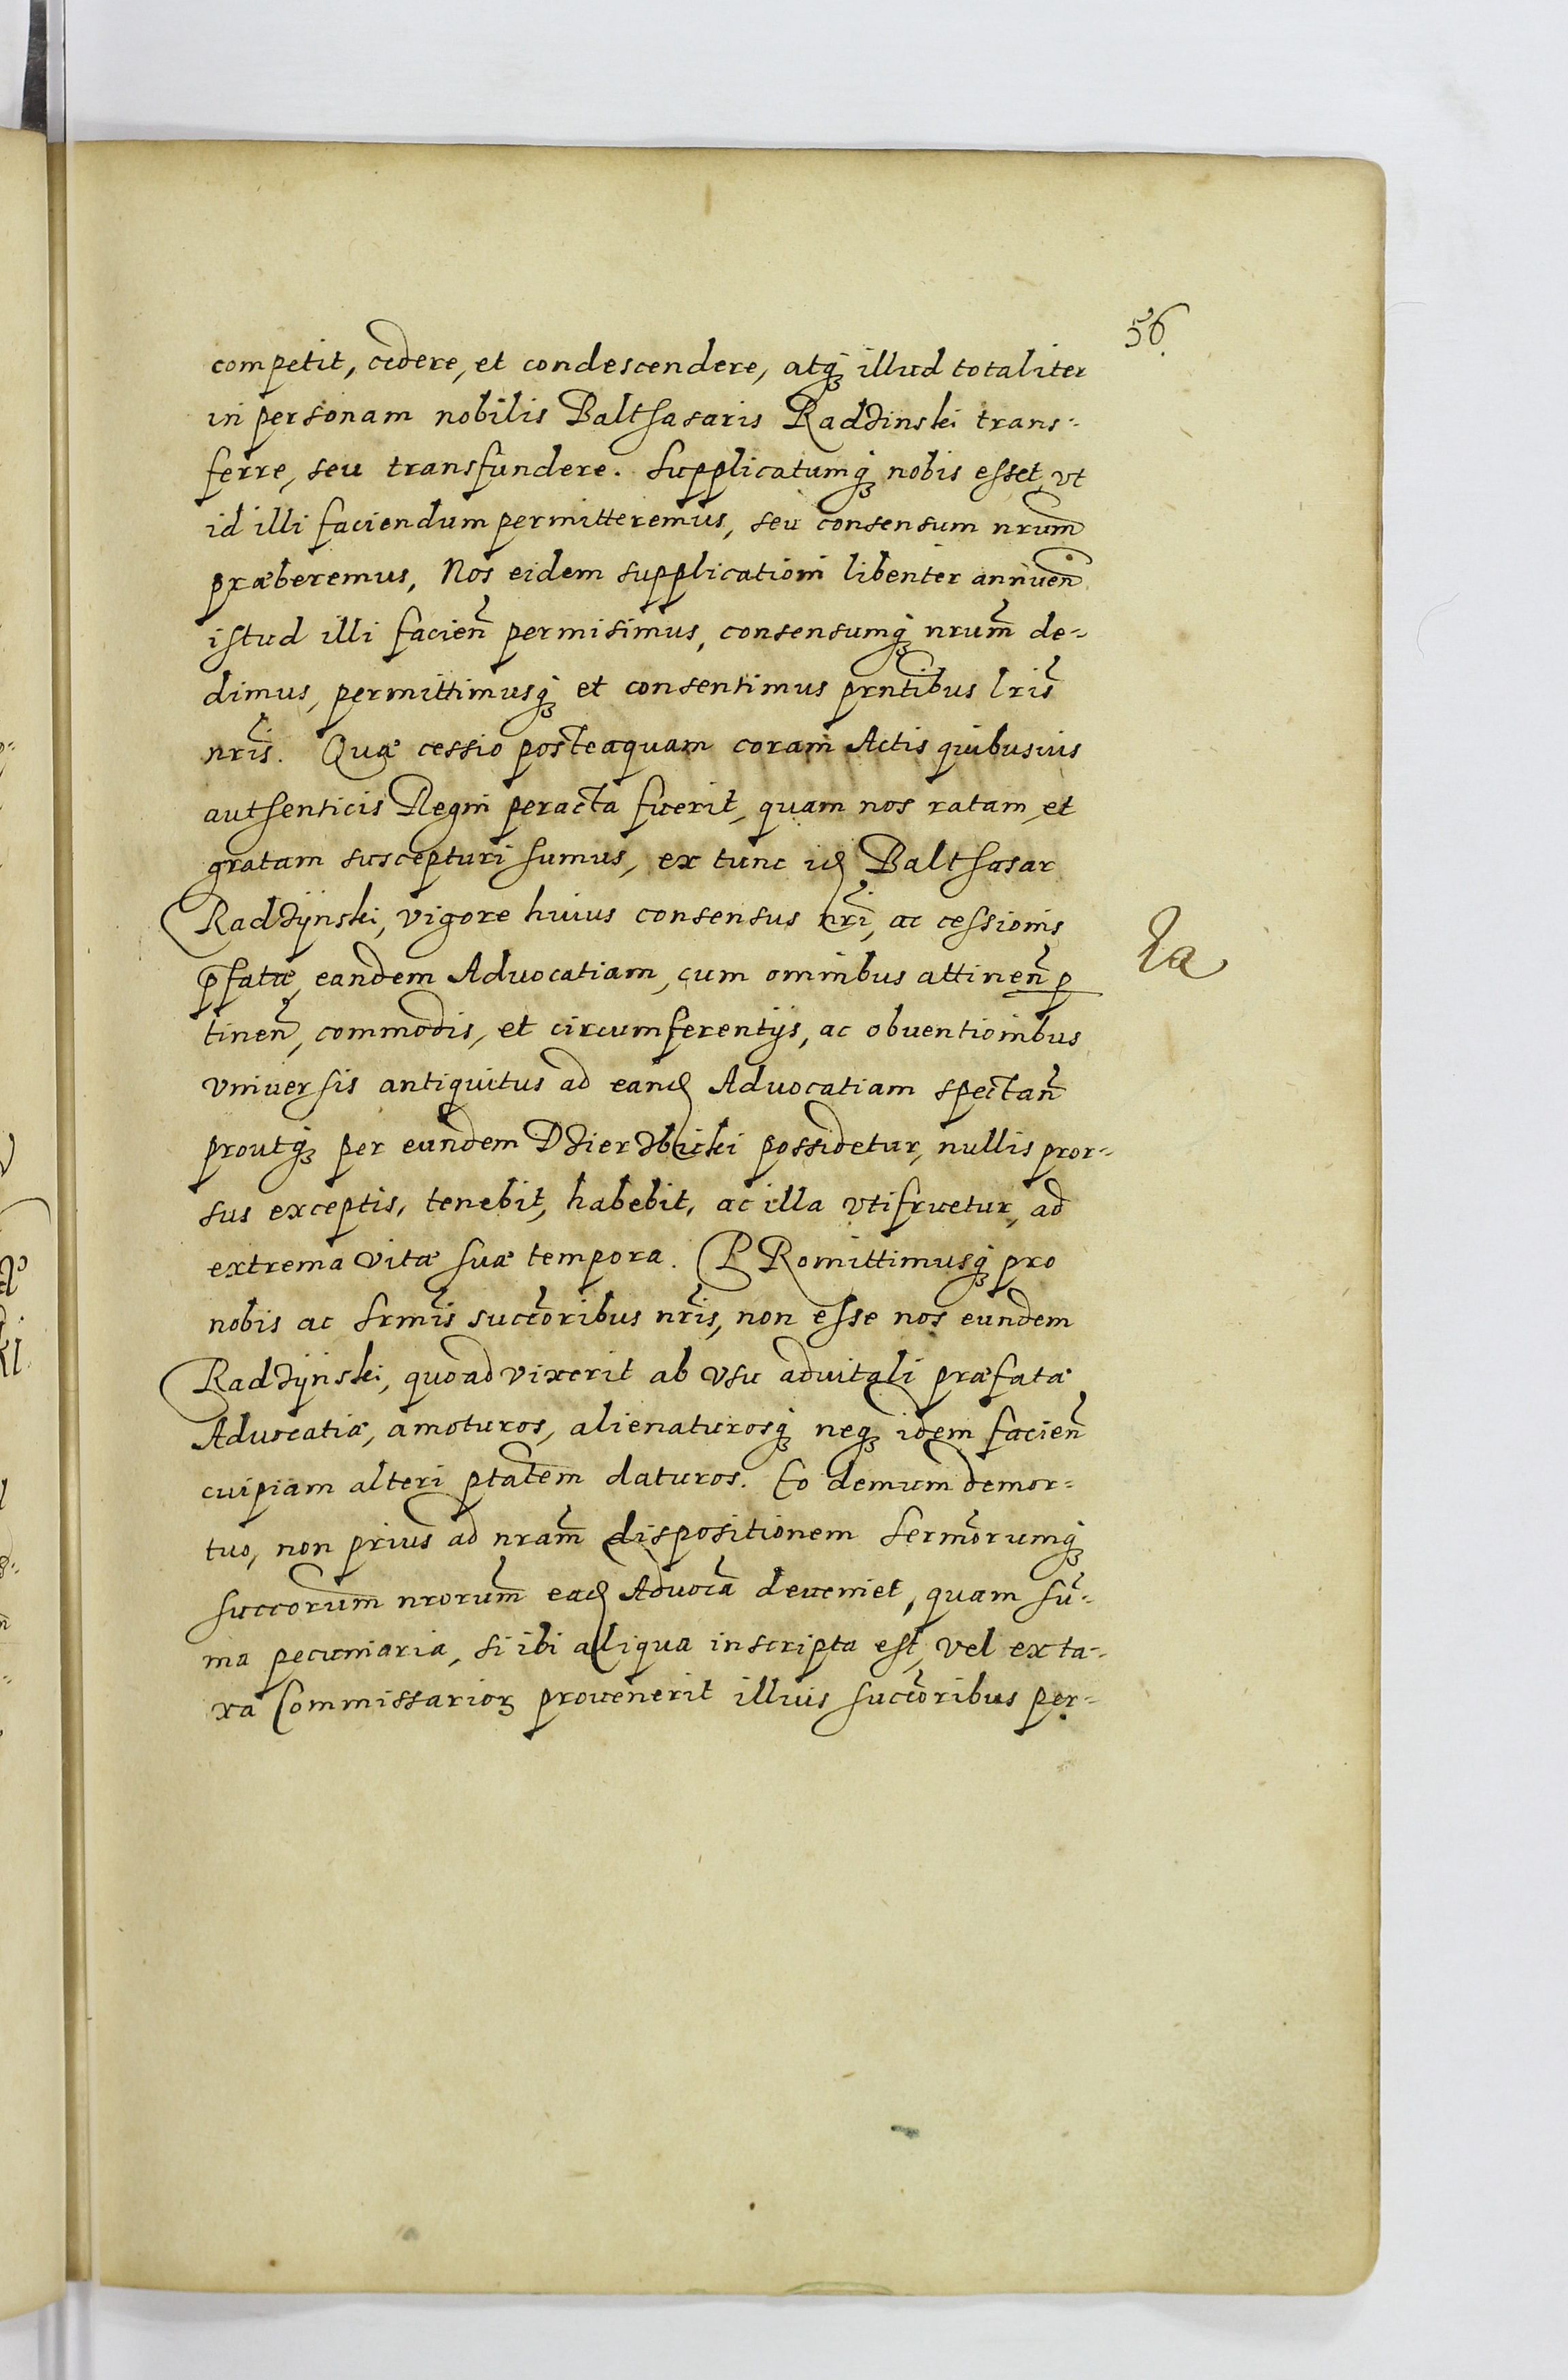 56.
competit, cedere, et condescendere, atq₃ illud totaliter
in personam nobilis Balthasaris Radzinski trans-
ferre, seu transfundere. Supplicatumq₃ nobis esset, vt
id illi faciendum permitteremus, seu consensum nrum̃
præberemus, Nos eidem supplicationi libenter annuen̄
istud illi facien̄ permisimus, consensumq₃ nrum̃ de-
dimus, permittimusq₃ et consentimus prntibus lris̃
nris̃. Quæ cessio posteaquam coram Actis quibusuis
authenticis Regni peracta fuerit, quam nos ratam, et
gratam suscepturi sumus, ex tunc id Balthasar
Radzÿnski, vigore huius consensus nrĩ, ac cessionis
p̄fatæ, eandem Aduocatiam, cum omnibus attinen̄ p
tinen̄, commodis, et circumferentijs, ac obuentionibus
vniuersis antiquitus ad eand Aduocatiam spectan̄
proutq₃ per eundem Dzierzbicki possidetur, nullis pror-
sus exceptis, tenebit, habebit, ac illa vtifruetur, ad
extrema vitæ suæ tempora. PRomittimusq₃ pro
nobis ac srmis̃ succõribus nris̃, non esse nos eundem
Radzÿnski, quoad vixerit ab vsu aduitali præfatæ
Aduocatiæ, amoturos, alienaturosq₃ neq₃ idem facien̄
cuipiam alteri ptatem daturos. Eo demum demor-
tuo, non prius ad nram̃ dispositionem sermõrumq₃
succorum nrorum̃ ead Aduocã deueniet, quam sũ-
ma pecuniaria, si ibi aliqua inscripta est, vel ex ta-
xa Commissarioꝝ prouenerit illius succõribus per-